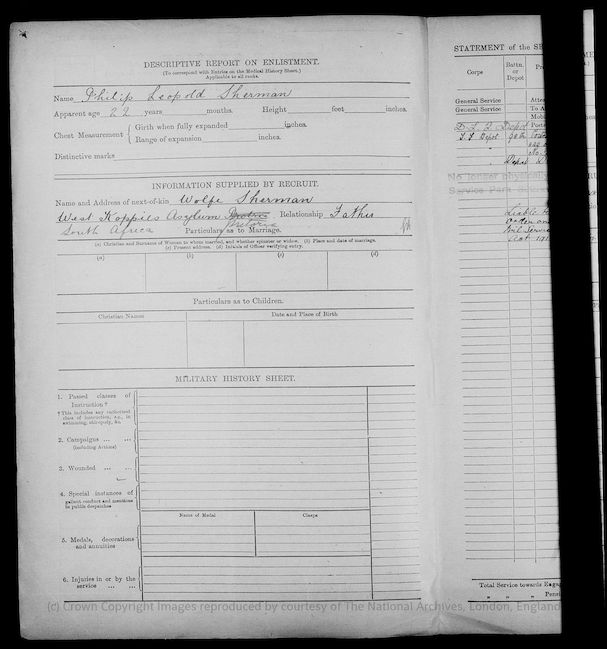 DESCRIPTIVE REPORT ON ENLISTMENT.
(To correspond with Entries on the Medical History Sheet.)
Applicable to all ranks.
Name Philip Leopold Sherman
Apparent age 22 years months. Height feet inches.
Chest Measurement { Girth when fully expanded inches.
Range of expansion inches.
Distinctive marks
INFORMATION SUPPLIED BY RECRUIT.
Name and Address of next-of-kin Wolfe Sherman
West Koppies Asylum Pretoria Relationship Father
South Africa Particulars as to Marriage.
(a) Christian and Surname of Woman to whom married, and whether spinster or widow. (b) Place and date of marriage.
(c) Present address. (d) Initials of Officer verifying entry.
(a) (b) (c) (d)
Particulars as to Children.
Christian Names Date and Place of Birth
MILITARY HISTORY SHEET.
1. Passed classes of
Instruction †
† This includes any authorized
class of instruction, e.g., in
swimming, chiropody, &c.
2. Campaigns ... ...
(including Actions)
3. Wounded ... ...
4. Special instances of
gallant conduct and mentions
in public despatches
Name of Medal Clasps
5. Medals, decorations
and annuities
6. Injuries in or by the
service ... ...
STATEMENT of the SE
Corps Battn. or Depot
General Service
General Service
Depot
No longer physically
Service Para
Liable
Total Service towards Engag
" " Pensi
(c) Crown Copyright Images reproduced by courtesy of The National Archives, London, England